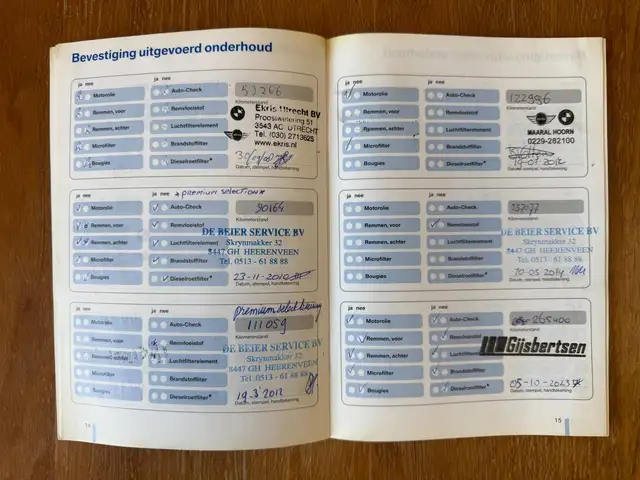 Bevestiging uitgevoerd onderhoud
ja nee ja nee
Motorolie Auto-Check 53266
Kilometerstand
Remmen, voor Remvloeistof Ekris Utrecht BV
Prooswetering 51
Remmen, achter Luchtfilterelement 3543 AC UTRECHT
Tel. (030) 2713625
Microfilter Brandstoffilter www.ekris.nl
Bougies Dieselroetfilter*
Datum, stempel, handtekening
ja nee ja nee * PREMIUM SELECTION *
Motorolie Auto-Check 90164
Kilometerstand
Remmen, voor Remvloeistof DE BEIER SERVICE BV
Skrynmakker 32
Remmen, achter Luchtfilterelement 8447 GH HEERENVEEN
Microfilter Brandstoffilter Tel. 0513 - 61 88 88
Bougies Dieselroetfilter* 23-11-2010
Datum, stempel, handtekening
ja nee ja nee premium selection
Motorolie Auto-Check 111059
Kilometerstand
Remmen, voor Remvloeistof DE BEIER SERVICE BV
Skrynmakker 32
Remmen, achter Luchtfilterelement 8447 GH HEERENVEEN
Microfilter Brandstoffilter Tel. 0513 - 61 88 88
Bougies Dieselroetfilter* 19-3-2012
Datum, stempel, handtekening
14
ja nee ja nee
Motorolie Auto-Check 122996
Kilometerstand
Remmen, voor Remvloeistof
Remmen, achter Luchtfilterelement MAARAL HOORN
0229-282100
Microfilter Brandstoffilter
Bougies Dieselroetfilter*
Datum, stempel, handtekening
ja nee ja nee
Motorolie Auto-Check
Kilometerstand
Remmen, voor Remvloeistof DE BEIER SERVICE BV
Skrynmakker 32
Remmen, achter Luchtfilterelement 8447 GH HEERENVEEN
Microfilter Brandstoffilter Tel. 0513 - 61 88 88
Bougies Dieselroetfilter* 20-05-2014
Datum, stempel, handtekening
ja nee ja nee
Motorolie Auto-Check 265400
Kilometerstand
Remmen, voor Remvloeistof
Remmen, achter Luchtfilterelement Gijsbertsen
Microfilter Brandstoffilter
Bougies Dieselroetfilter* 05-10-2023
Datum, stempel, handtekening
15